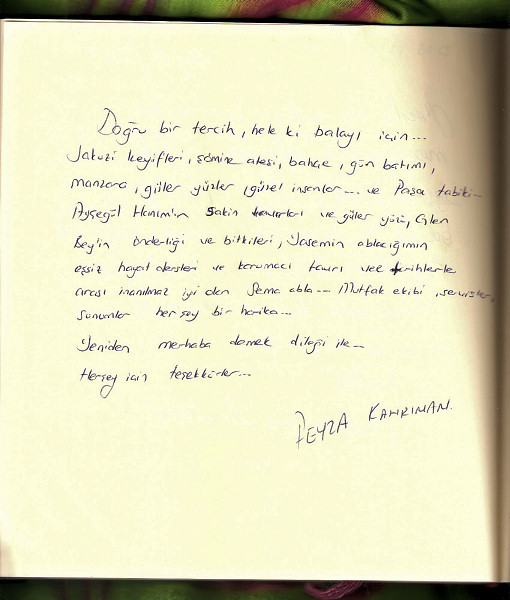 Doğru bir tercih, hele ki balayı için...
Jakuzi keyifleri, şömine ateşi, bahçe, gün batımı,
manzara, güler yüzler, güzel insanlar... ve Paşa tabiki...
Ayşegül Hanım'ın sakin tavırları ve güler yüzü,
Bey'in önderliği ve bitkileri, Yasemin ablacığımın
eşsiz hayat dersleri ve korumacı tavrı ve tarihlerle
arası inanılmaz iyi olan Sema abla... Mutfak ekibi, servisler,
sunumlar herşey bir harika...
Yeniden merhaba demek dileği ile...
Herşey için teşekkürler...
FEYZA KAHRIMAN.